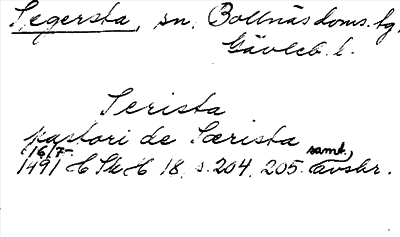 Segersta, sn. Bollnäs doms. tg.
Gävleb. l.
Serista
pastori de Særista
16/7 1491 C Sk H 18, s. 204, 205. samt. avskr.